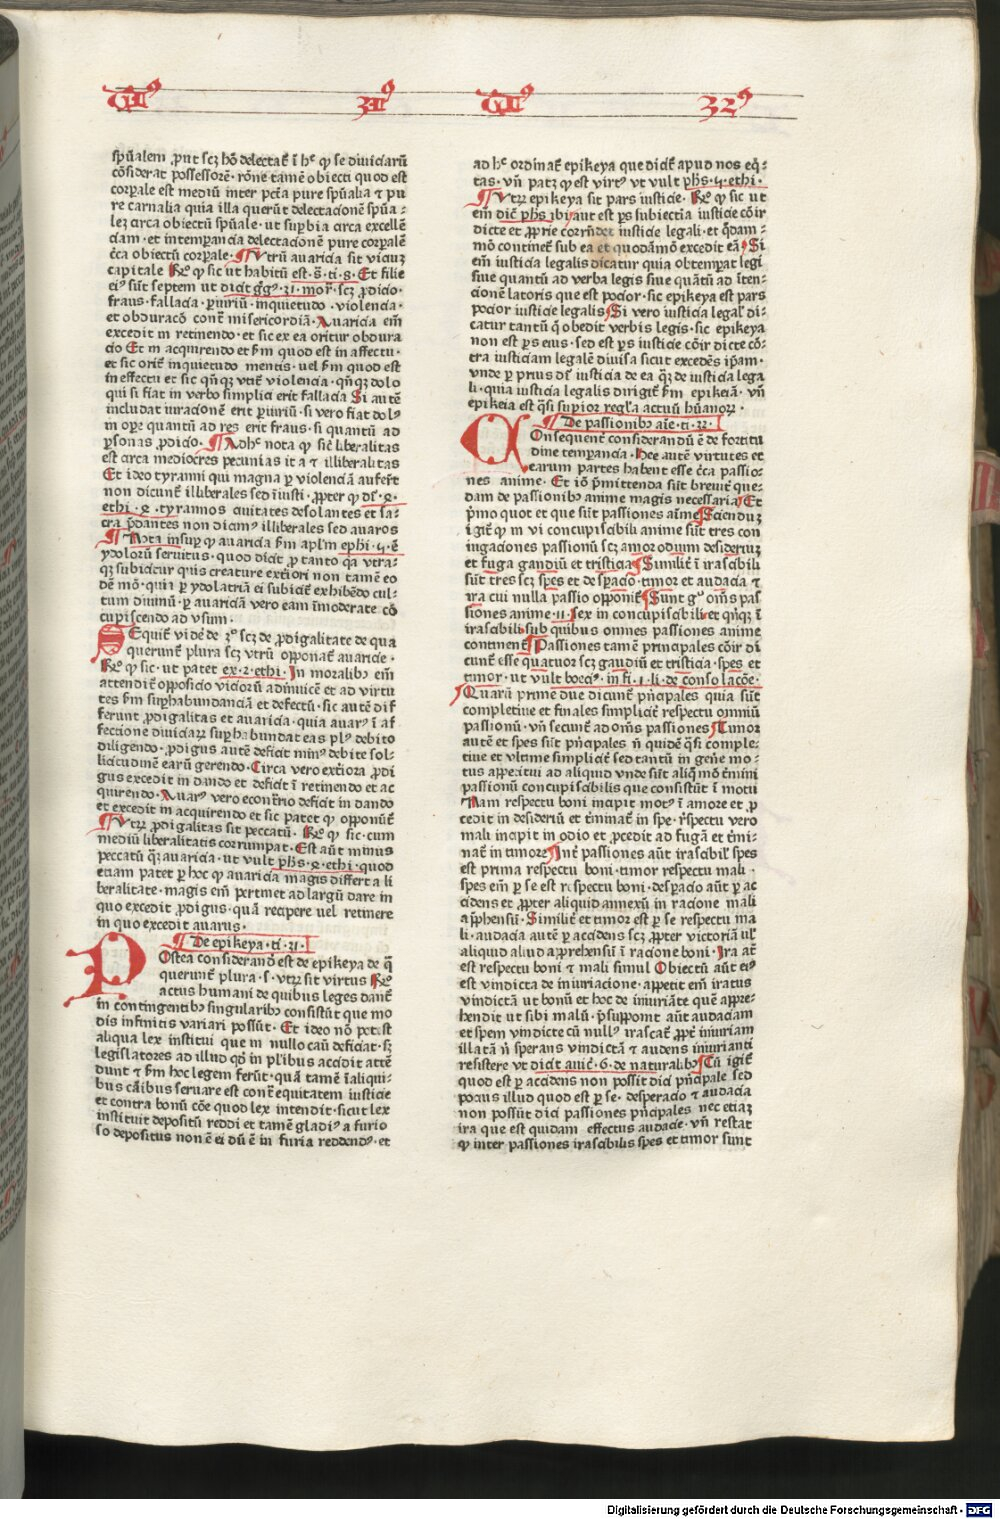 Tit⁹ 31⁹ Tit⁹ 32⁹
spūalem ꝓut scꝫ hō delectat̄ ī hᶜ ꝙ se diuiciaꝝ
cōsiderat possessorē · rōne tamē obiecti quod est
corꝑale est mediū inter pctā pure spūalia ⁊ pu
re carnalia quia illa querūt delectacionē spūa ⸗
lez circa obiectū spūale · ut suꝑbia circa excellē
ciam · et intemꝑancia delectacionē pure corꝑalē
c̄ca obiectū corꝑale · ¶ Vtrū auaricia sit viciuꝫ
capitale Rᵒ ꝙ sic ut habitū est · s̄ · ti · 8 · Et filie
ei⁹ sūt septem ut dicit g̅g⁹ · 31 · moꝝ · scꝫ ꝓdicio ·
fraus · fallacia · ꝑiuriū · inquietudo · violencia ·
et obduracō contᷓ misericordiā · Auaricia em̄
excedit in retinendo · et sic ex ea oritur obdura
cio Et in acquirendo et ẜm quod est in affectu ·
et sic orit̄ inquietudo mentis · uel ẜm quod est
in effectu et sic qn̄qꝫ vtit̄ violencia · qn̄qꝫ dolo
qui si fiat in verbo simplici erit fallacia Si autē
includat iuracionē erit ꝑiuriū · si vero fiat dol⁹
in oꝑe quantū ad res erit fraus · si quantū ad
ꝑsonas ꝓdicio · ¶ Adhᶜ nota ꝙ sic̄ liberalitas
est circa mediocres pecunias ita ⁊ illiberalitas
Et ideo tyranni qui magna ꝑ violenciā auferūt
non dicunt̄ illiberales sed iniusti · ꝓpter ꝙ dr̄ · 4 ·
ethi · 4 · tyrannos ciuitates desolantes et sa⸗
cra p̄dantes non dicim⁹ illiberales sed auaros
¶ Nota insuꝑ ꝙ auaricia ẜm aplm̄ ephi · 5 · ē
ydoloꝝ seruitus · quod dicit ꝓ tanto qꝛ vtra⸗
qꝫ subicitur quis creature exteriori non tamē eo
dē mō · quia ꝑ ydolatriā ei subicit̄ exhibēdo cul⸗
tum diuinū · ꝑ auariciā vero eam īmoderate cō
cupiscendo ad vsum ·
SEquit̄ vidēdē de 2ᵒ scꝫ de ꝓdigalitate de qua
querunt̄ plura scꝫ vtrū opponat̄ auaricie ·
Rᵒ ꝙ sic · ut patet ex · 2 · ethi · In moralibꝫ em̄
attendit̄ opposicio vicioꝝ adinuicē et ad virtu
tes ẜm suꝑhabundanciā et defectū · sic autē dif
ferunt ꝓdigalitas et auaricia · quia auar⁹ ī af
fectione diuiciaꝝ suꝑhabundat eas pl⁹ debito
diligendo · ꝓdigus autē deficit min⁹ debite sol⸗
licitudinē earū gerendo · Circa vero exteriora ꝓdi
gus excedit in dando et deficit ī retinendo et ac
quirendo · Auar⁹ vero econtᷓrio deficit in dando
et excedit in acquirendo et sic patet ꝙ opponūt̄
¶ Vtꝝ ꝓdigalitas sit peccatū · Rᵒ ꝙ sic · cum
mediū liberalitatis corrumpat · Est aūt minus
peccatū qꝫ̄ auaricia · ut vult ph̄s · 4 · ethi · quod
etiam patet ꝑ hoc ꝙ auaricia magis differt a li
beralitate · magis em̄ pertinet ad largū dare in
quo excedit ꝓdigus · quā recipere uel retinere
in quo excedit auarus ·
¶ De epikeya · ti · 31 ·
POstea considerand̄ est de epikeya de q̄
querunt̄ plura · s · vtꝝ sit virtus Rᵒ
actus humani de quibus leges dant̄
in contingentibꝫ singularibꝫ consistūt que mo
dis infinitis variari possūt · Et ideo nō pot̄ist
aliqua lex institui que in nullo casū deficiat · sꝫ
legislatores ad illud qd̄ in pl̄ibus accidit attē
dunt ⁊ ẜm hoc legem ferūt · quā tamē ī aliqui⸗
bus casibus seruare est contᷓ equitatem iusticie
et contra bonū cōe quod lex intendit · sicut lex
instituit depositū reddi et tamē gladi⁹ a furio
so depositus non ē ei dū ē in furia reddend⁹ · et
ad hᶜ ordinat̄ epikeya que dicit̄ apud nos eq̄⸗
tas · vn̄ patꝫ ꝙ est virt⁹ vt vult ph̄s · 5 · ethi ·
¶ Vtꝝ epikeya sit pars iusticie · Rᵒ ꝙ sic ut
em̄ dic̄ ph̄s ibi / aut est ꝑs subiectia iusticie cōir
dicte et ꝓprie corrn̄det iusticie legali · et q̄dam⸗
mō continet̄ sub ea et quodāmō excedit eā ¶ Si
em̄ iusticia legalis dicatur quia obtemꝑat legi
siue quantū ad verba legis siue quātū ad īten⸗
cionē latoris que est pocior · sic epikeya est pars
pocior iusticie legalis ¶ Si vero iusticia legal̄ di⸗
catur tantū q̄ obedit verbis legis · sic epikeya
non est ꝑs eius · sed est ꝑs iusticie cōir dicte cō⸗
tra iusticiam legalē diuisa sicut excedēs ip̄am ·
vnde ꝑ prius dr̄ iusticia de ea qꝫ̄ de iusticia lega
li · quia iusticia legalis dirigit̄ ẜm epikeiā · vn̄
epikeia est q̄si suꝑior regl̄a actuū hūanoꝝ ·
¶ De passionibꝫ aīe · ti · 32 ·
COnsequent̄ considerandū ē de fortitu
dine temꝑancia · Hec autē virtutes et
earum partes habent esse c̄ca passio⸗
nes anime · Et iō p̄mittenda sūt breuit̄ que⸗
dam de passionibꝫ anime magis necessaria ¶ Et
p̄mo quot et que sūt passiones aīme ¶ Sciendūꝫ
igit̄ ꝙ in vi concupiscibili anime sūt tres con
iugaciones passionū scꝫ amor odium desideriuꝫ
et fuga gaudiū et tristicia ¶ Similit̄ ī irascibili
sūt tres scꝫ spes et desꝑacio · timor et audacia ⁊
ira cui nulla passio opponit̄ ¶ Sunt g° om̄s pas
siones anime · 11 · sex in concupiscibili et qn̄qꝫ ī
irascibili sub quibus omnes passiones anime
continent̄ ¶ Passiones tamē principales cōir di
cunt̄ esse quatuor scꝫ gaudiū et tristicia · spes et
timor · ut vult boeci⁹ · in fi · 1 · li · de consolacōe ·
¶ Quarū prime due dicunt̄ pn̄cipales quia sūt
completiue et finales simplicit̄ respectu omniū
passionū · vn̄ secunt̄ ad om̄s passiones ¶ Timor
autē et spes sūt pn̄cipales n̄ quidē q̄si comple⸗
tiue et vltime simplicit̄ sed tantū in gen̄e mo⸗
tus appetitui ad aliquid vnde sūt aliq̄ mō t̄mini
passionū concupiscibilis que consistūt ī motu
Nam respectu boni incipit mot⁹ ī amore et ꝓ
cedit in desideriū et t̄minat̄ in spe · r̄spectu vero
mali incipit in odio et ꝓcedit ad fugā et t̄mi⸗
nat̄ in timore ¶ Int̄ passiones aūt irascibil̄ spes
est prima respectu boni · timor respectu mali ·
spes em̄ ꝑ se est respectu boni · desꝑacio aūt ꝑ ac
cidens et ꝓpter aliquid annexū in racione mali
ap̄hensū · Similit̄ et timor est ꝑ se respectu ma
li · audacia autē ꝑ accidens scꝫ ꝓpter victoriā ul̄
aliquid aliud apprehensū ī racione boni · Ira at̄
est respectu boni ⁊ mali simul Obiectū aūt ei⁹
est vindicta de iniuriacione · appetit em̄ iratus
vindictā ut bonū et hoc de iniuriāte quē appre⸗
hendit ut sibi malū · p̄supponit aūt audaciam
et spem vindicte cū null⁹ irascat̄ ꝓpt̄ iniuriam
illatā n̄ sperans vindictā ⁊ audens iniurianti
resistere vt dicit auic̄ · 6 · de naturalibꝫ ¶ Cū igit̄
quod est ꝑ accidens non possit dici pn̄cipale sed
pocius illud quod est ꝑ se · desperacio ⁊ audacia
non possūt dici passiones pn̄cipales nec etiaꝫ
ira que est quidam effectus audacie · vn̄ restat
ꝙ inter passiones irascibilis spes et timor sunt
Digitalisierung gefördert durch die Deutsche Forschungsgemeinschaft - DFG